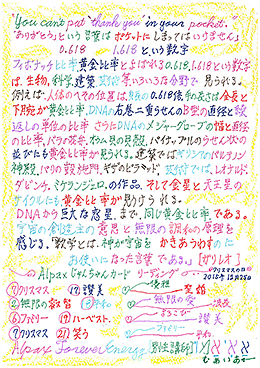 "You can't put "thank you" in your pocket."
「ありがとう」という言葉は ポケットに しまってはいけません
0.618 1.618 という数字
フィボナッチ比率 黄金比率とよばれる 0.618、1.618という数字
は、生物、科学、建築、芸術等 いろいろな分野で 見られる。
例えば、人体のへその位置は、縦の0.618倍
下腕が黄金比率、DNAの右巻二重らせんの
返しの単位の比率 さらにDNAのメジャーグローブの幅と直径
の比率、バラの花弁、オウム貝の貝殻、パイナップルのうろこ状の
並びにも黄金比率が見られる。建築ではギリシアのパルテノン
神殿、パリの凱旋門、ギザのピラミッド 芸術では、レオナルド
ダビンチ、ミケランジェロの作品、そして金星と天王星の
サイクルにも黄金比率が見つけられる。
DNAから巨大な惑星まで、同じ黄金比率である。
宇宙の創造主の意思と無限の調和の原理を
感じる。「数学とは、神が宇宙を かきあらわすのに
お使いになった言葉である。」[ガリレオ]
Alpax じゃんちゃんカード リーディング
クリスマスの日
2015年12月25日
⑦クリスマス ⑰讃美
②無限の叡智
無限の愛
⑥ファミリー ⑲ハーベスト
よろこび
讃美
⑦クリスマス ㉑笑う
ファミリー
Alpax Forever Energy